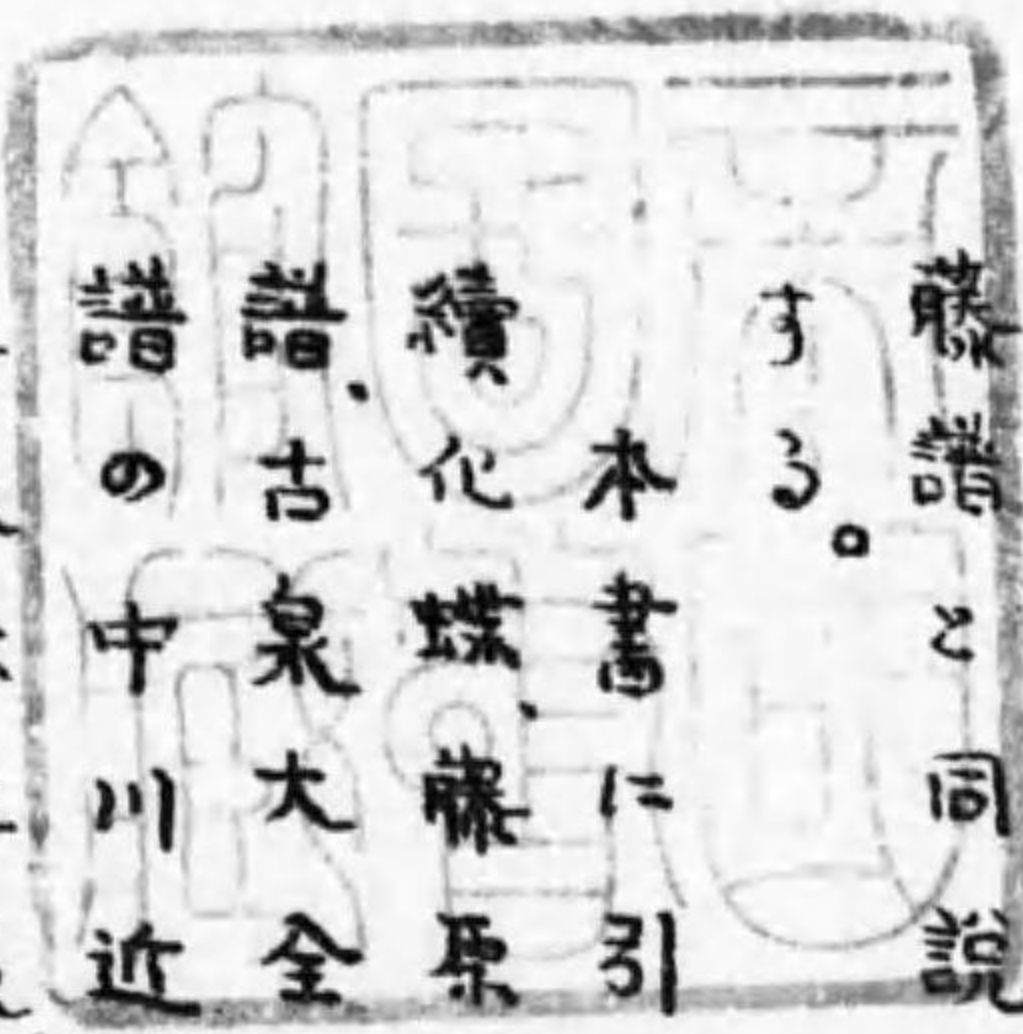 藤譜と同説
する。
本書に引
續化蝶、藤原
譜、古泉大全
譜の中川近